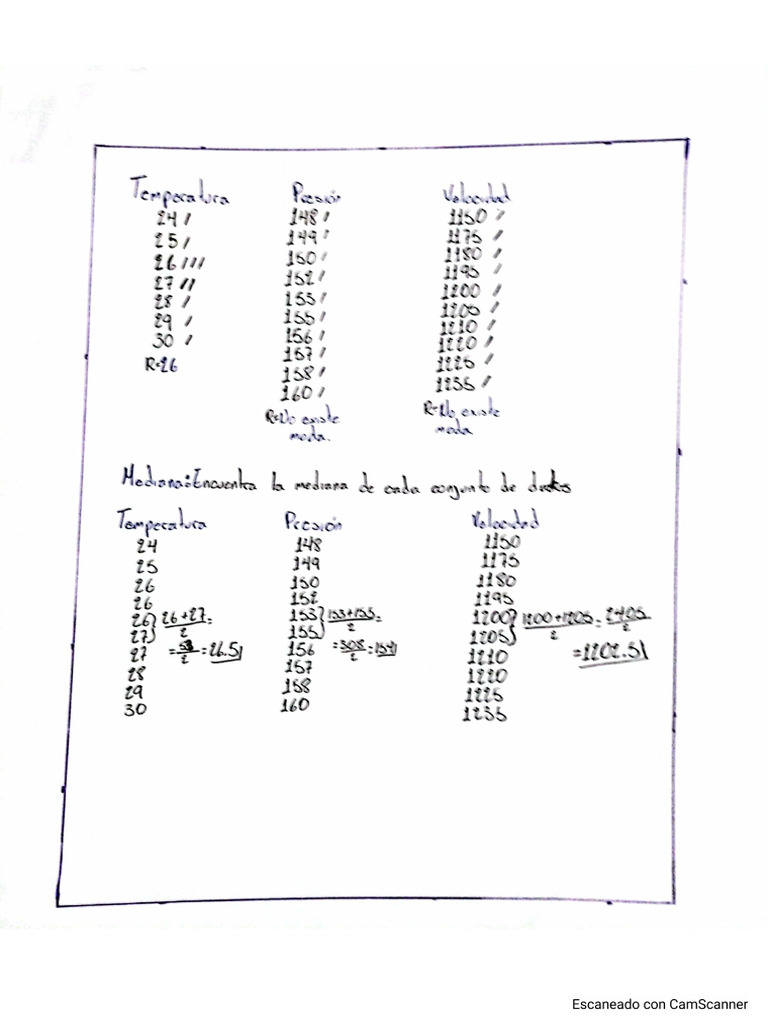 Temperatura Presión Velocidad
24 / 148 / 1150 /
25 / 149 / 1175 /
26 /// 150 / 1180 /
27 // 152 / 1195 /
28 / 153 / 1200 /
29 / 155 / 1205 /
30 / 156 / 1210 /
R=26 157 / 1220 /
158 / 1225 /
160 / 1235 /
R=No existe moda. R=No existe moda
Mediana: Encuentra la mediana de cada conjunto de datos
Temperatura Presión Velocidad
24 148 1150
25 149 1175
26 150 1180
26 152 1195
26} 26+27/2= 153} 153+155/2= 1200} 1200+1205/2=2405/2
27 155 1205
27 =53/2=26.5 156 =308/2=154 1210 =1202.5
28 157 1220
29 158 1225
30 160 1235
Escaneado con CamScanner